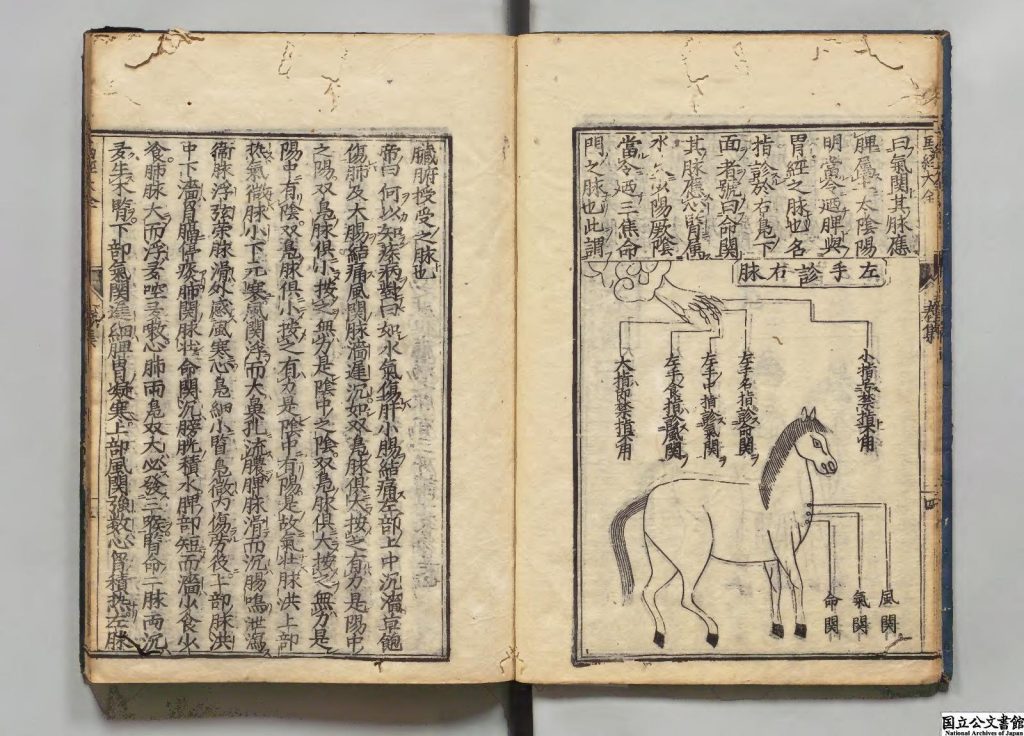 曰氣関其脉應
脾屬太陰陽
明當令廼脾與
胃經之脉也名
指診於右鳬下
面者號曰命関
其脉應心腎屬
水火少陽厥陰
當令廼三焦命
門之脉也此謂
左手診右脉
小指無禁揣不用
左手名指診命関
左手中指診氣関
左手食指診風関
大指即禁揣不用
風関
氣関
命関
臟腑授受之脉也
帝曰何以知疾病對曰如水氣傷肝小腸結痛左部上中沉濇草飽
傷肺及大腸結痛風関脉濇遲沉如双鳬脉俱大按之有力是陽中
之陽双鳬脉俱小按之無力是陰中之陰双鳬脉俱大按之無力是
陽中有陰双鳬脉俱小按之有力是陰中有陽是故氣壮脉洪上部
熱氣微脉小下元寒風関浮而大鼻孔流膿脾脉滑而沉腸鳴泄瀉
衛脉浮弦荣脉滑外感風寒心鳬細小腎鳬微內傷勞役上部脉洪
中下濇胃膈停痰肺関脉壮命関沉膀胱積水脾部短而濇少食少
飡肺脉大而浮多啌多嗽心肺兩鳬双大必發三喉腎命二脉両沉
多生木腎下部氣関遲細脾胃凝寒上部風関強数心胷積熱左脉
国立公文書館
National Archives of Japan